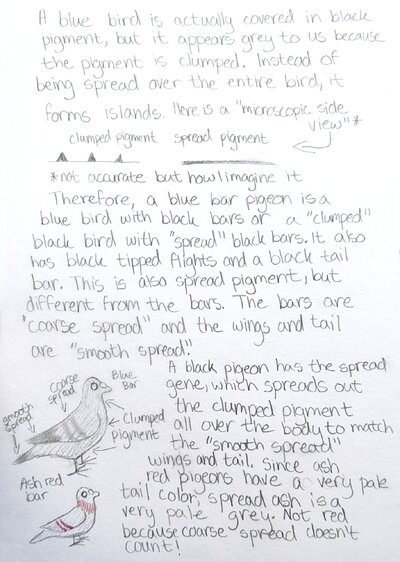 A blue bird is actually covered in black
pigment, but it appears grey to us because
the pigment is clumped. Instead of
being spread over the entire bird, it
forms islands. Here is a "microscopic side
view"*
clumped pigment spread pigment
*not accurate but how I imagine it
Therefore, a blue bar pigeon is a
blue bird with black bars or a "clumped"
black bird with "spread" black bars. It also
has black tipped flights and a black tail
bar. This is also spread pigment, but
different from the bars. The bars are
"coarse spread" and the wings and tail
are "smooth spread."
A black pigeon has the spread
gene, which spreads out
the clumped pigment
all over the body to match
the "smooth spread"
wings and tail. Since ash
red pigeons have a very pale
tail color, spread ash is a
very pale grey. Not red
because coarse spread doesn't
count!
smooth
spread
coarse
spread
Blue
Bar
Clumped
pigment
Ash red
bar